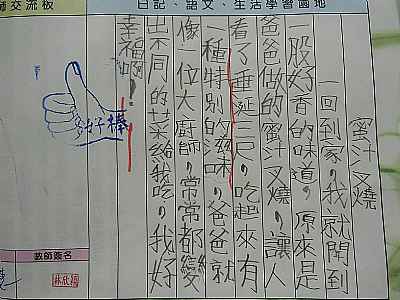 師交流板
日記、語文、生活學習園地
蜜汁叉燒
一回到家,我就聞到
一股好香的味道,原來是
爸爸做的蜜汁叉燒,讓人
看了垂延三尺,吃起來有
一種特別的滋味,爸爸就
像一位大廚師,常常都變
出不同的菜給我吃,我好
幸福啊!
好棒
教師簽名